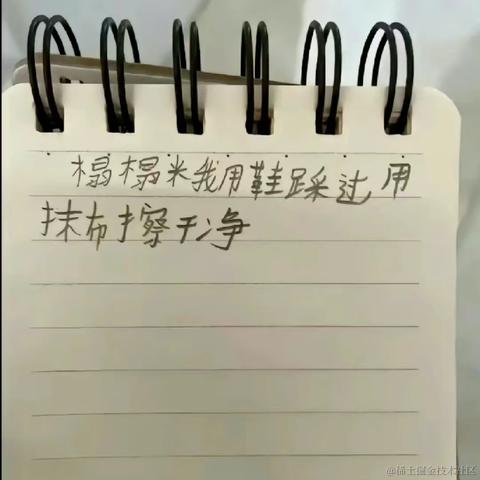 榻榻米我用鞋踩过用
抹布擦干净
@稀土掘金技术社区